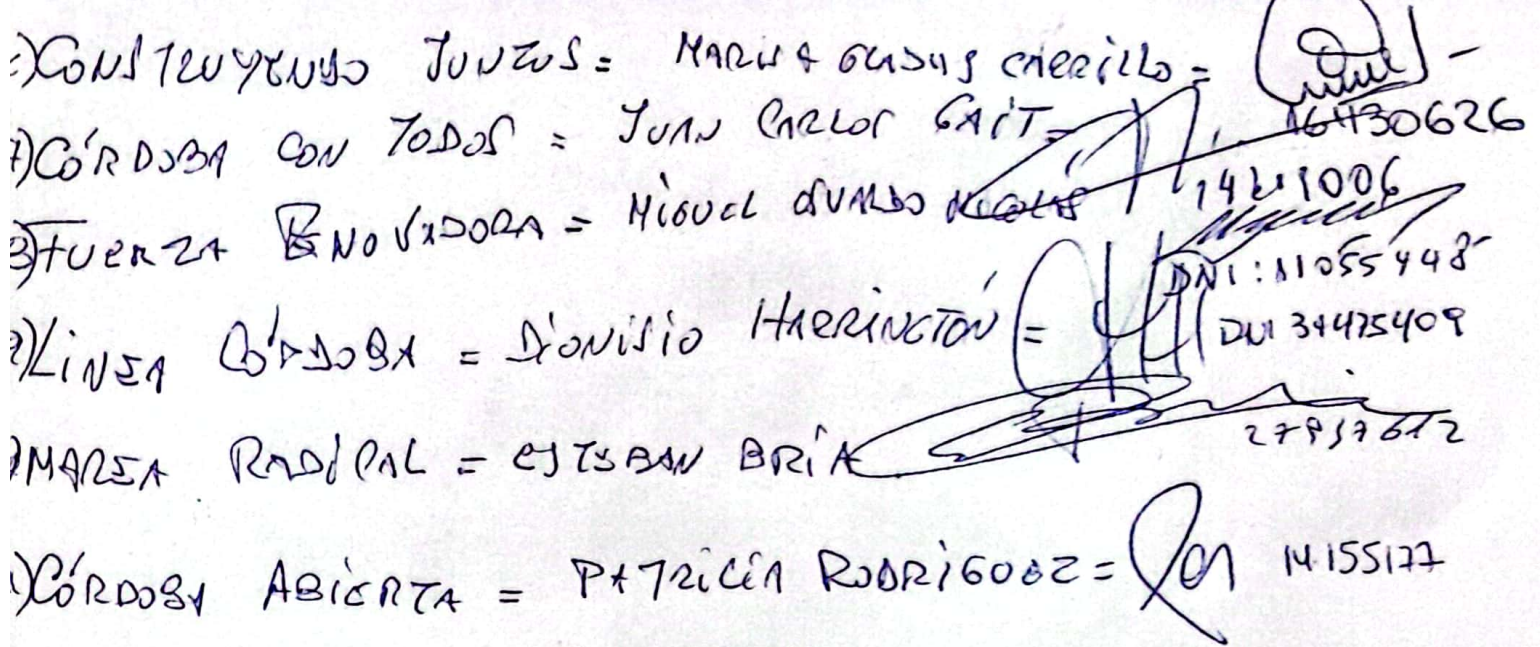 )CONSTRUYENDO JUNTOS = MARIA GLADYS CARRILLO =
16430626
)CÓRDOBA CON TODOS = JUAN CARLOS GAIT =
)FUERZA RENOVADORA = MIGUEL OSVALDO NICOLÁS
DNI: 11055448
)LINEA CÓRDOBA = DIONISIO HARRINGTON =
DNI 31425409
)MAREA RADICAL = ESTEBAN BRIA
27957612
)CÓRDOBA ABIERTA = PATRICIA RODRIGUEZ = 14.155177